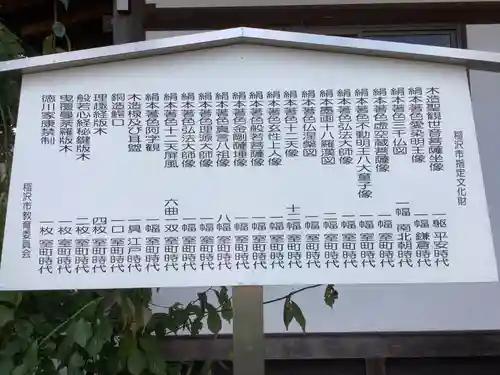 稲沢市指定文化財
木造聖観世音菩薩坐像 一躯 平安時代
絹本著色愛染明王像 一幅 鎌倉時代
絹本著色三千仏図 一幅 南北朝時代
絹本著色虚空蔵菩薩像 一幅 室町時代
絹本著色不動明王八大童子像 一幅 室町時代
絹本著色弘法大師像 一幅 室町時代
絹本墨画十八羅漢図 二幅 室町時代
絹本著色仏涅槃図 一幅 室町時代
絹本著色十二天像 十二幅 室町時代
絹本著色玄性上人像 一幅 室町時代
絹本著色般若菩薩像 一幅 室町時代
絹本著色金剛薩埵像 一幅 室町時代
絹本著色真言八祖像 八幅 室町時代
絹本著色理源大師像 一幅 室町時代
絹本著色弘法大師像 一幅 室町時代
絹本著色十二天屏風 六曲一双 室町時代
絹本著色阿字像 一幅 室町時代
木造及び耳盥 一具 江戸時代
銅造鰐口 一口 室町時代
理趣経版木 四枚 室町時代
般若心経秘鍵版木 二枚 室町時代
曳覆曼荼羅版木 一枚 室町時代
徳川家康禁制 一枚 室町時代
稲沢市教育委員会